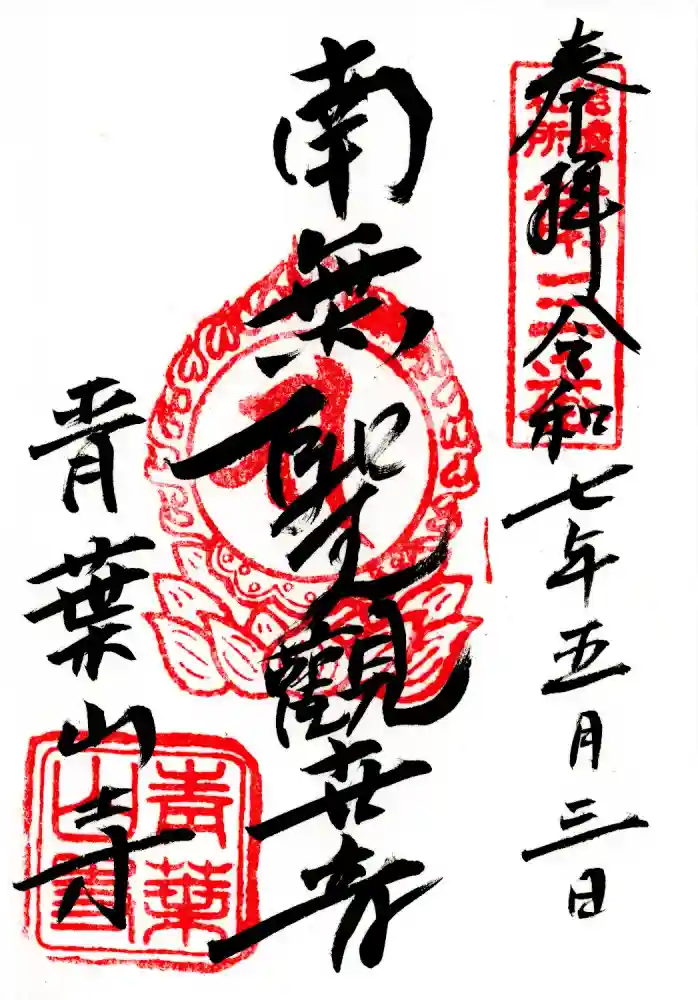 奉拜 令和七年五月三日
南無聖觀世音
青葉山寺
青葉
山寺